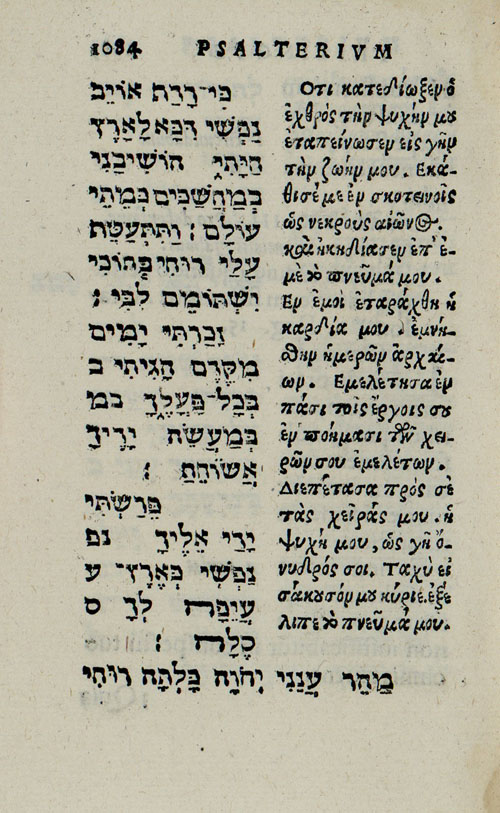 1084 PSALTERIVM
כִּי־רָדַת אוֹיֵב
נַפְשִׁי דִּכָּא לָאָרֶץ
חַיָּתִי הוֹשִׁיבַנִי
בְמַחֲשַׁכִּים כְּמֵתֵי
עוֹלָם׃ וַתִּתְעַטֵּף
עָלַי רוּחִי בְּתוֹכִי
יִשְׁתּוֹמֵם לִבִּי׃
זָכַרְתִּי יָמִים
מִקֶּדֶם הָגִיתִי ב
בְּכָל־פָּעֳלֶךָ במ
בְּמַעֲשֵׂה יָדֶיךָ
אֲשׂוֹחֵחַ׃
פֵּרַשְׂתִּי
יָדַי אֵלֶיךָ נפ
נַפְשִׁי כְּאֶרֶץ־ ע
עֲיֵפָה לְךָ ס
סֶלָה׃
מַהֵר עֲנֵנִי יְהוָה כָּלְתָה רוּחִי
Οτι κατεδίωξεν ὁ
ἐχθρὸς τὴν ψυχήν μου
ἐταπείνωσεν εἰς γῆν
τὴν ζωήν μου. Εκά-
θισέ με ἐν σκοτεινοῖς
ὡς νεκροὺς αἰῶνος.
καὶ ἠκηδίασεν ἐπ' ἐ-
μὲ τὸ πνεῦμά μου.
Εν ἐμοὶ ἐταράχθη ἡ
καρδία μου. ἐμνή-
σθην ἡμερῶν ἀρχαί-
ων. Εμελέτησα ἐν
πᾶσι τοῖς ἔργοις σου
ἐν ποιήμασι τῶν χει-
ρῶν σου ἐμελέτων.
Διεπέτασα πρὸς σὲ
τὰς χεῖράς μου. ἡ
ψυχή μου, ὡς γῆ ἄ-
νυδρός σοι. Ταχὺ εἰ
σάκουσόν μου κύριε. ἐξέ
λιπε τὸ πνεῦμά μου.